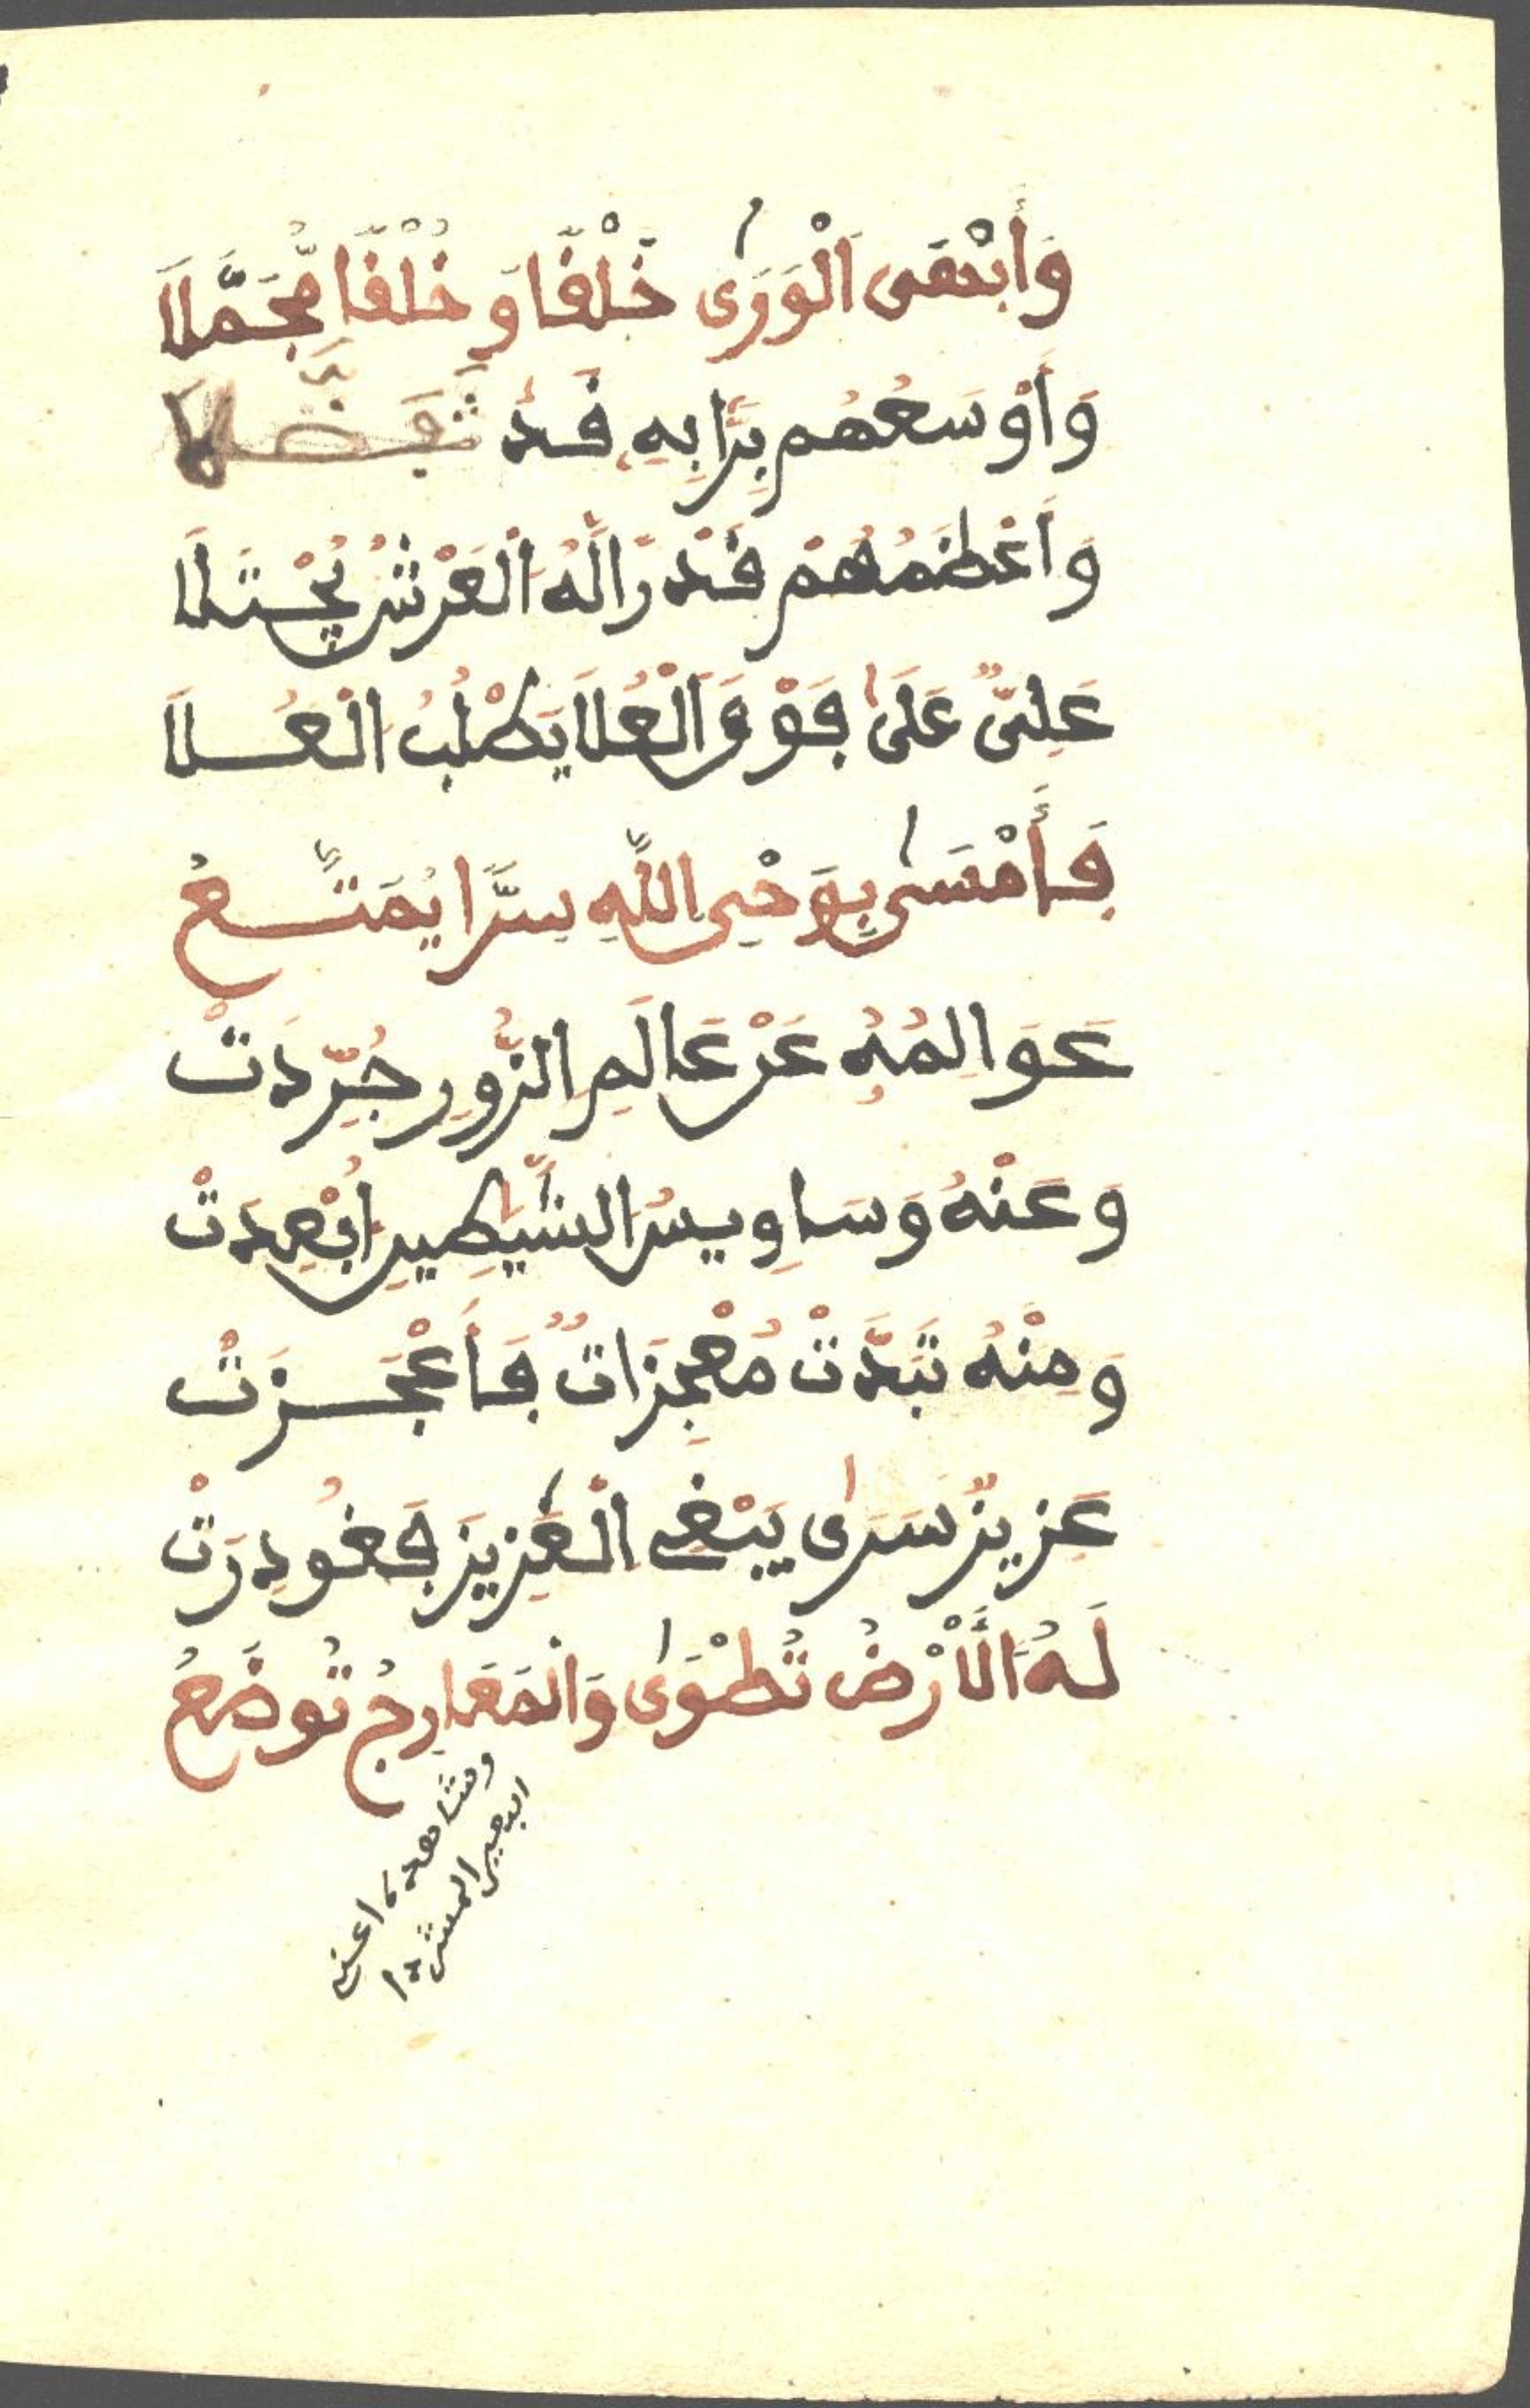 وَأَبْهَى الْوَرَى خَلْقًا وَخُلْقًا مُّجَمَّلَا
وَأَوْسَعُهُم بِرًّا بِهِ قَدْ تَفَضَّلَا
وَأَعْظَمُهُمْ قَدْرًا لَّهُ الْعَرْشُ يُجْتَلَا
عَلِيٌّ عَلَى فَوْقَ الْعُلَا يَطْلُبُ الْعُلَا
فَأَمْسَى بِوَحْيِ اللَّهِ سِرًّا يُمَتَّعُ
عَوَالِمُهُ عَنْ عَالَمِ الزُّورِ جُرِّدَتْ
وَعَنْهُ وَسَاوِيسُ الشَّيَطِينِ أُبْعِدَتْ
وَمِنْهُ تَبَدَّتْ مُعْجِزَاتٌ فَأَعْجَزَتْ
عَزِيزٌ سَرَى يَبْغِي الْعَزِيزَ فَغُودِرَتْ
لَهُ الْأَرْضُ تُطْوَى وَالْمَعَارِجُ تُوضَعُ
ومشاهدة